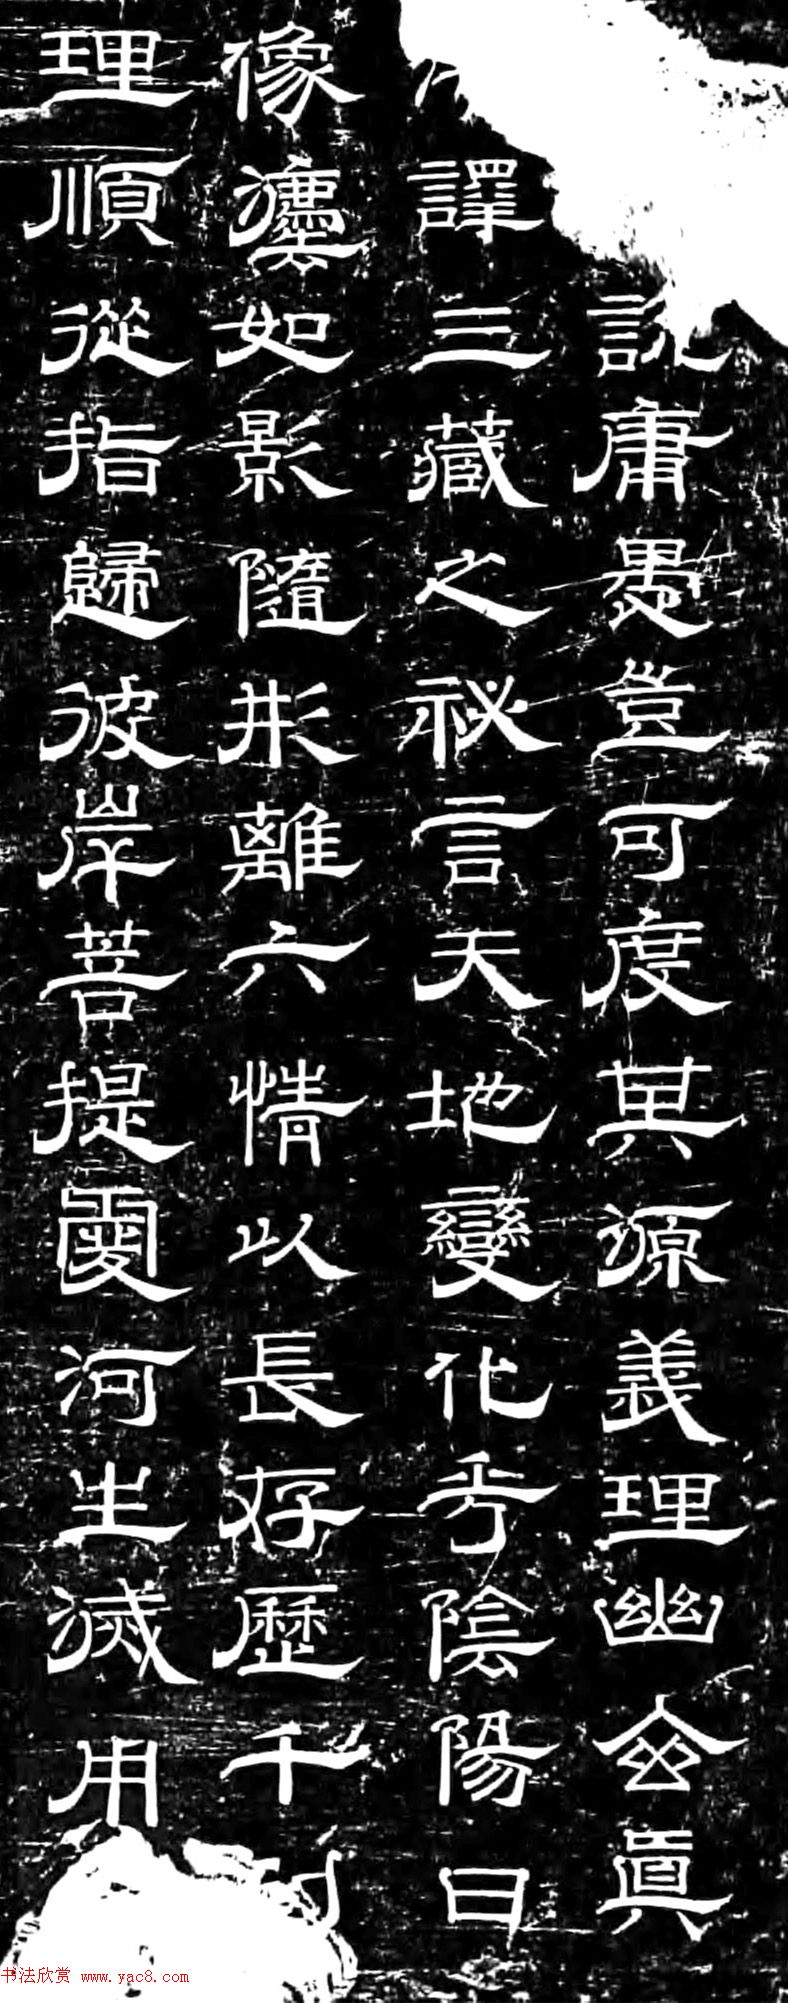 訛庸愚豈可度其源義理幽玄真
譯三藏之祕言天地變化乎陰陽日
像瀍如影隨形離六情以長存歷千
理順從指歸彼岸菩提愛河生滅用
书法欣赏 www.yac8.com